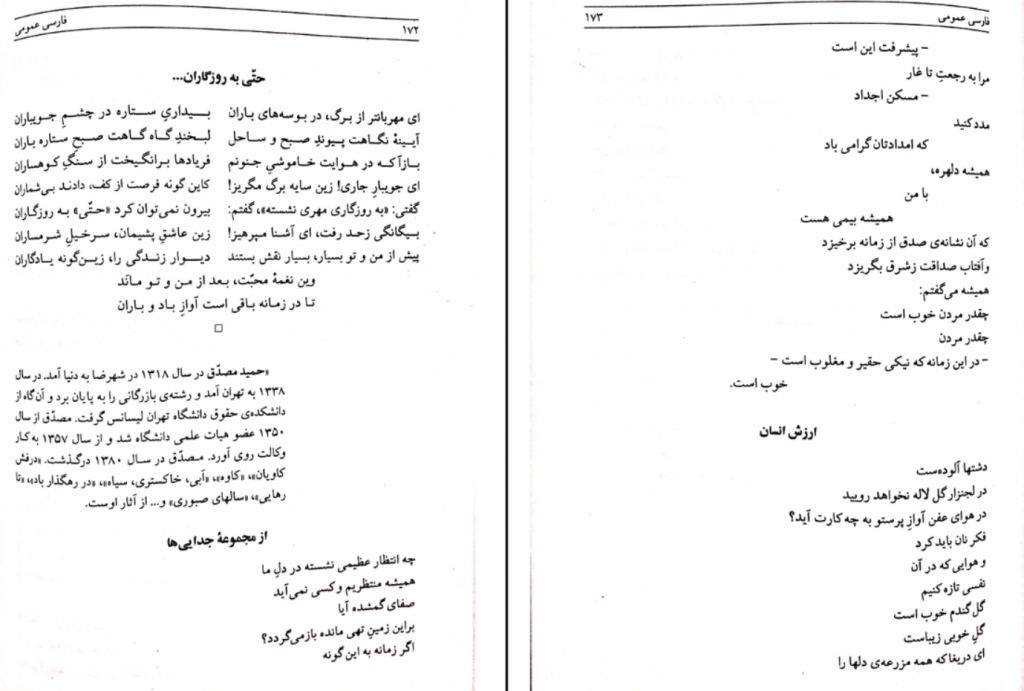 ۱۷۲ فارسی عمومی
حتّی به روزگاران...
ای مهربانتر از برگ، در بوسه‌های باران بیداریِ ستاره در چشمِ جویباران
آیینهٔ نگاهت پیوندِ صبح و ساحل لبخندِ گاه گاهت صبحِ ستاره باران
بازآ که در هوایت خاموشیِ جنونم فریادها برانگیخت از سنگِ کوهساران
ای جویبارِ جاری! زین سایه برگ مگریز! کاین گونه فرصت از کف، دادند بی‌شماران
گفتی: «به روزگاری مهری نشسته»، گفتم: بیرون نمی‌توان کرد «حتّی» به روزگاران
بیگانگی زحد رفت، ای آشنا مپرهیز! زین عاشقِ پشیمان، سرخیلِ شرمساران
پیش از من و تو بسیار، بسیار نقش بستند دیوار زندگی را، زین‌گونه یادگاران
وین نغمهٔ محبّت، بعد از من و تو ماند
تا در زمانه باقی است آوازِ باد و باران
«حمید مصدّق در سال ۱۳۱۸ در شهرضا به دنیا آمد. در سال
۱۳۳۸ به تهران آمد و رشته‌ی بازرگانی را به پایان برد و آن‌گاه از
دانشکده‌ی حقوق دانشگاه تهران لیسانس گرفت. مصدّق از سال
۱۳۵۰ عضو هیات علمی دانشگاه شد و از سال ۱۳۵۷ به کار
وکالت روی آورد. مصدّق در سال ۱۳۸۰ درگذشت. «درفش
کاویان»، «کاوه»، «آبی، خاکستری، سیاه»، «در رهگذار باد»، «تا
رهایی»، «سالهای صبوری» و... از آثار اوست.
از مجموعهٔ جدایی‌ها
چه انتظار عظیمی نشسته در دلِ ما
همیشه منتظریم و کسی نمی‌آید
صفای گمشده آیا
براین زمینِ تهی مانده بازمی‌گردد؟
اگر زمانه به این گونه
فارسی عمومی ۱۷۳
– پیشرفت این است
مرا به رجعتِ تا غار
– مسکن اجداد
مدد کنید
که امدادتان گرامی باد
همیشه دلهره،
با من
همیشه بیمی هست
که آن نشانه‌ی صدق از زمانه برخیزد
و آفتاب صداقت زشرق بگریزد
همیشه می‌گفتم:
چقدر مردن خوب است
چقدر مردن
– در این زمانه که نیکی حقیر و مغلوب است –
خوب است.
ارزش انسان
دشتها آلوده‌ست
در لجنزار گل لاله نخواهد رویید
در هوای عفن آوازِ پرستو به چه کارت آید؟
فکر نان باید کرد
و هوایی که در آن
نفسی تازه کنیم
گل گندم خوب است
گلِ خوبی زیباست
ای دریغا که همه مزرعه‌ی دلها را